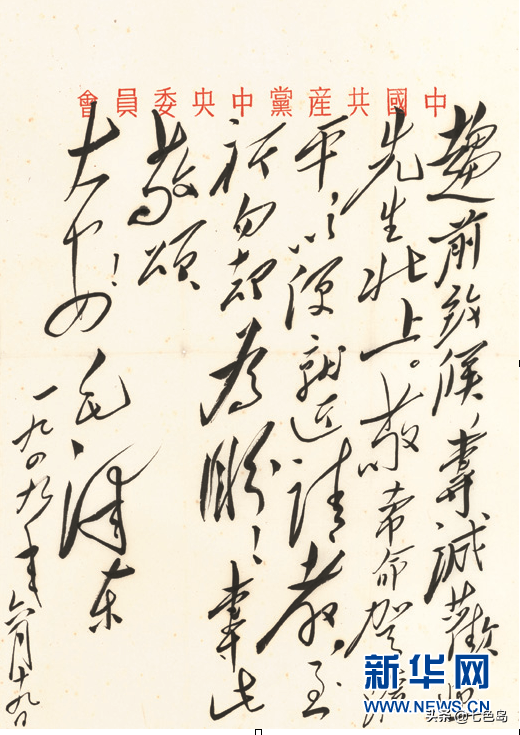 中國共産黨中央委員會
趨前致候，專誠歡迎
先生北上。敬希命駕蒞
平，以便就近請教，至
祈勿却為盼！專此
敬頌
大安！
毛澤東
一九四九年六月十九日
新华网
头条@七色岛